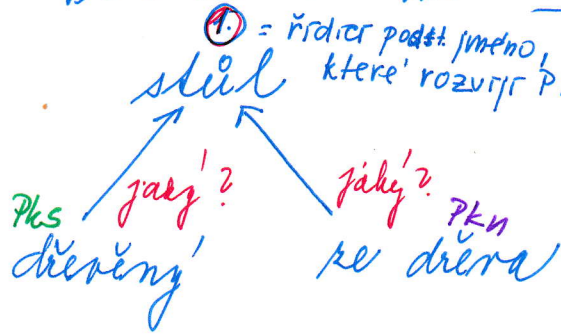 1. = řídící podst. jméno,
které rozvíjí P.
stůl
jaký? jaký?
Pks Pkn
dřevěný ze dřeva